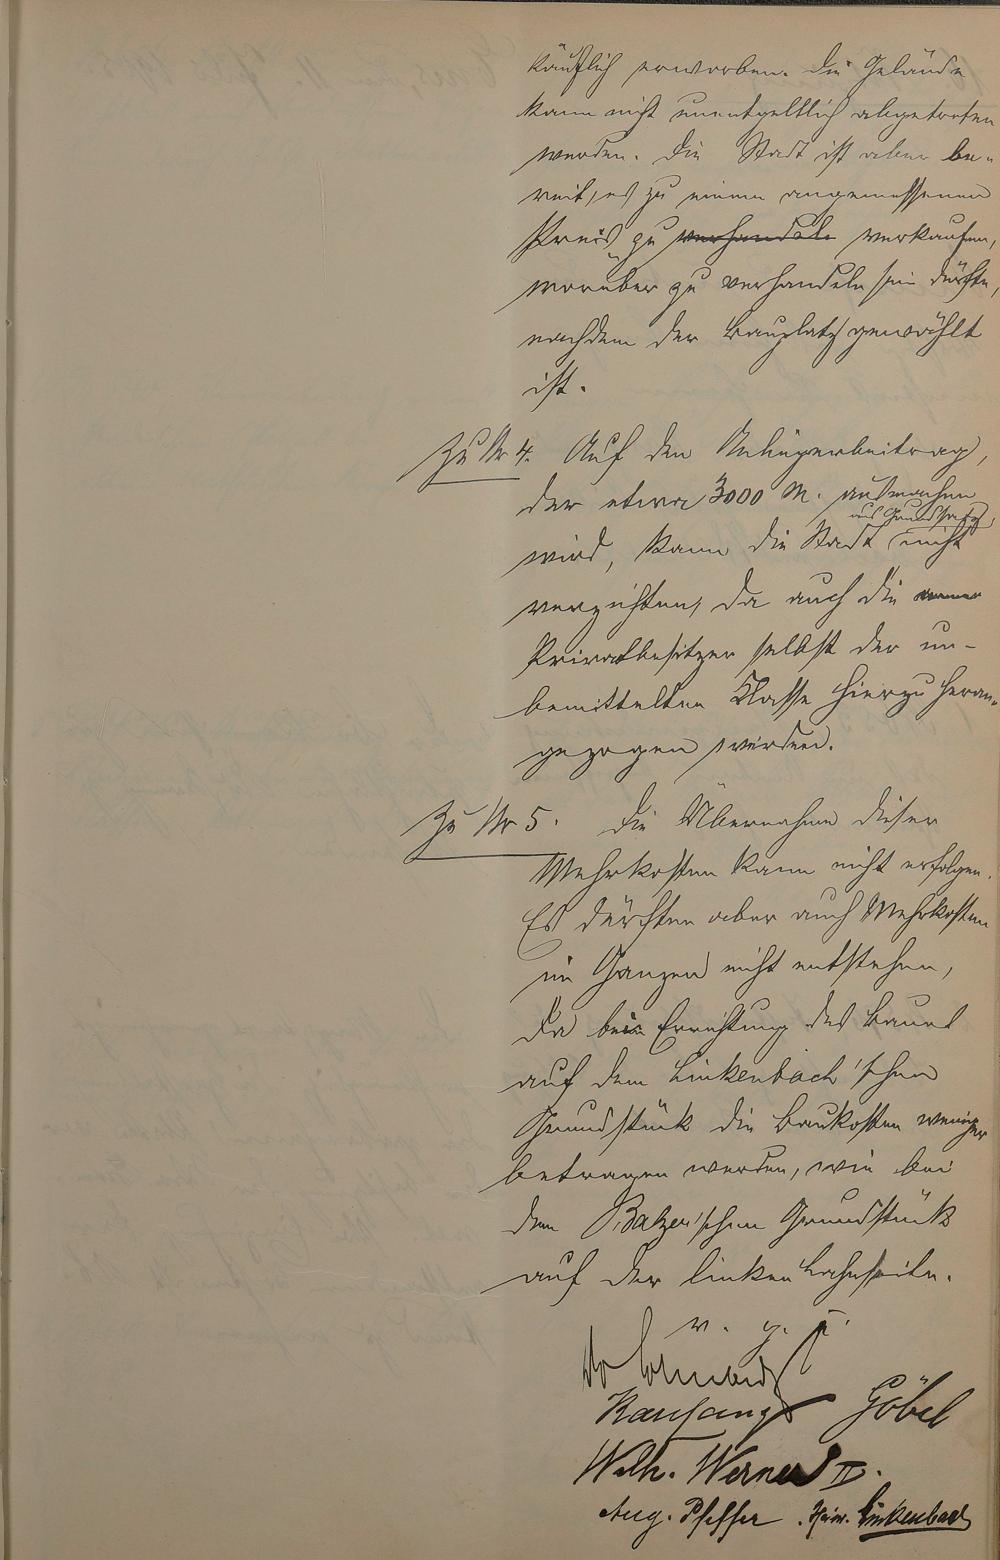 käuflich erworben. Die Gelände
kann nicht unentgeltlich abgetreten
werden. Die Stadt ist aber be-
reit, es zu einem angemessenen
Preis zu verhandeln verkaufen,
worüber zu verhandeln sein dürfte,
nachdem der Bauplatz gewählt
ist.
Zu Nr 4. Auf den Anliegerbeitrag,
der etwa 3000 M. ausmachen
aus Grundsatz
wird, kann die Stadt nicht
verzichten, da auch die armen
Privatbesitzer selbst der un-
bemittelten Klasse hierzu heran-
gezogen werden.
Zu Nr 5. Die Übernahme dieser
Mehrkosten kann nicht erfolgen.
Es dürften aber auch Mehrkosten
im Ganzen nicht entstehen,
da bei Errichtung des Baues
auf dem Linkenbach'schen
Grundstück die Baukosten weniger
betragen werden, wie bei
dem Balzer'schen Grundstück
auf der linken Lahnseite.
v. g. u.
Kauffang Göbel
Wilh. Werner II.
Aug. Pfeffer . Heinr. Linkenbach